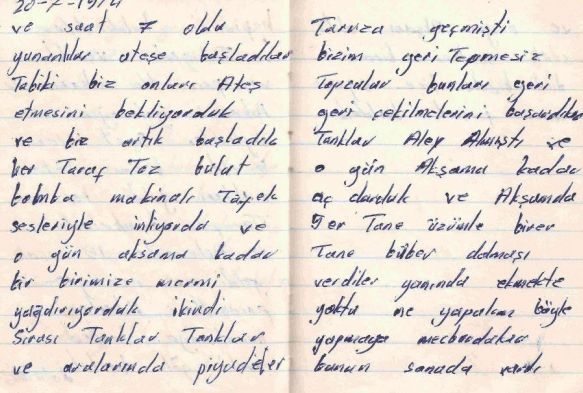 20-7-1974
ve saat 7 oldu
yunanlılar ateşe başladılar
Tabiki biz onların Ateş
etmesini bekliyorduk
ve biz artık başladık
her Taraf Toz bulut
bomba makinalı Tüfek
sesleriyle inliyordu ve
o gün akşama kadar
bir birimize mermi
yağdırıyorduk ikindi
Sırası Tanklar Tanklar
ve aralarında piyadeler
Taruza geçmişti
bizim geri Tepmesiz
Topcular bunları geri
geri çekilmelerini başardılar
Tanklar Alev Almıştı ve
o gün Akşama kadar
aç durduk ve Akşamda
5 er Tane üzümle birer
Tane biber dolması
verdiler yanında ekmekte
yoktu ne yapalım böyle
yapmaya mecburduklar
bunun sonuda vardı